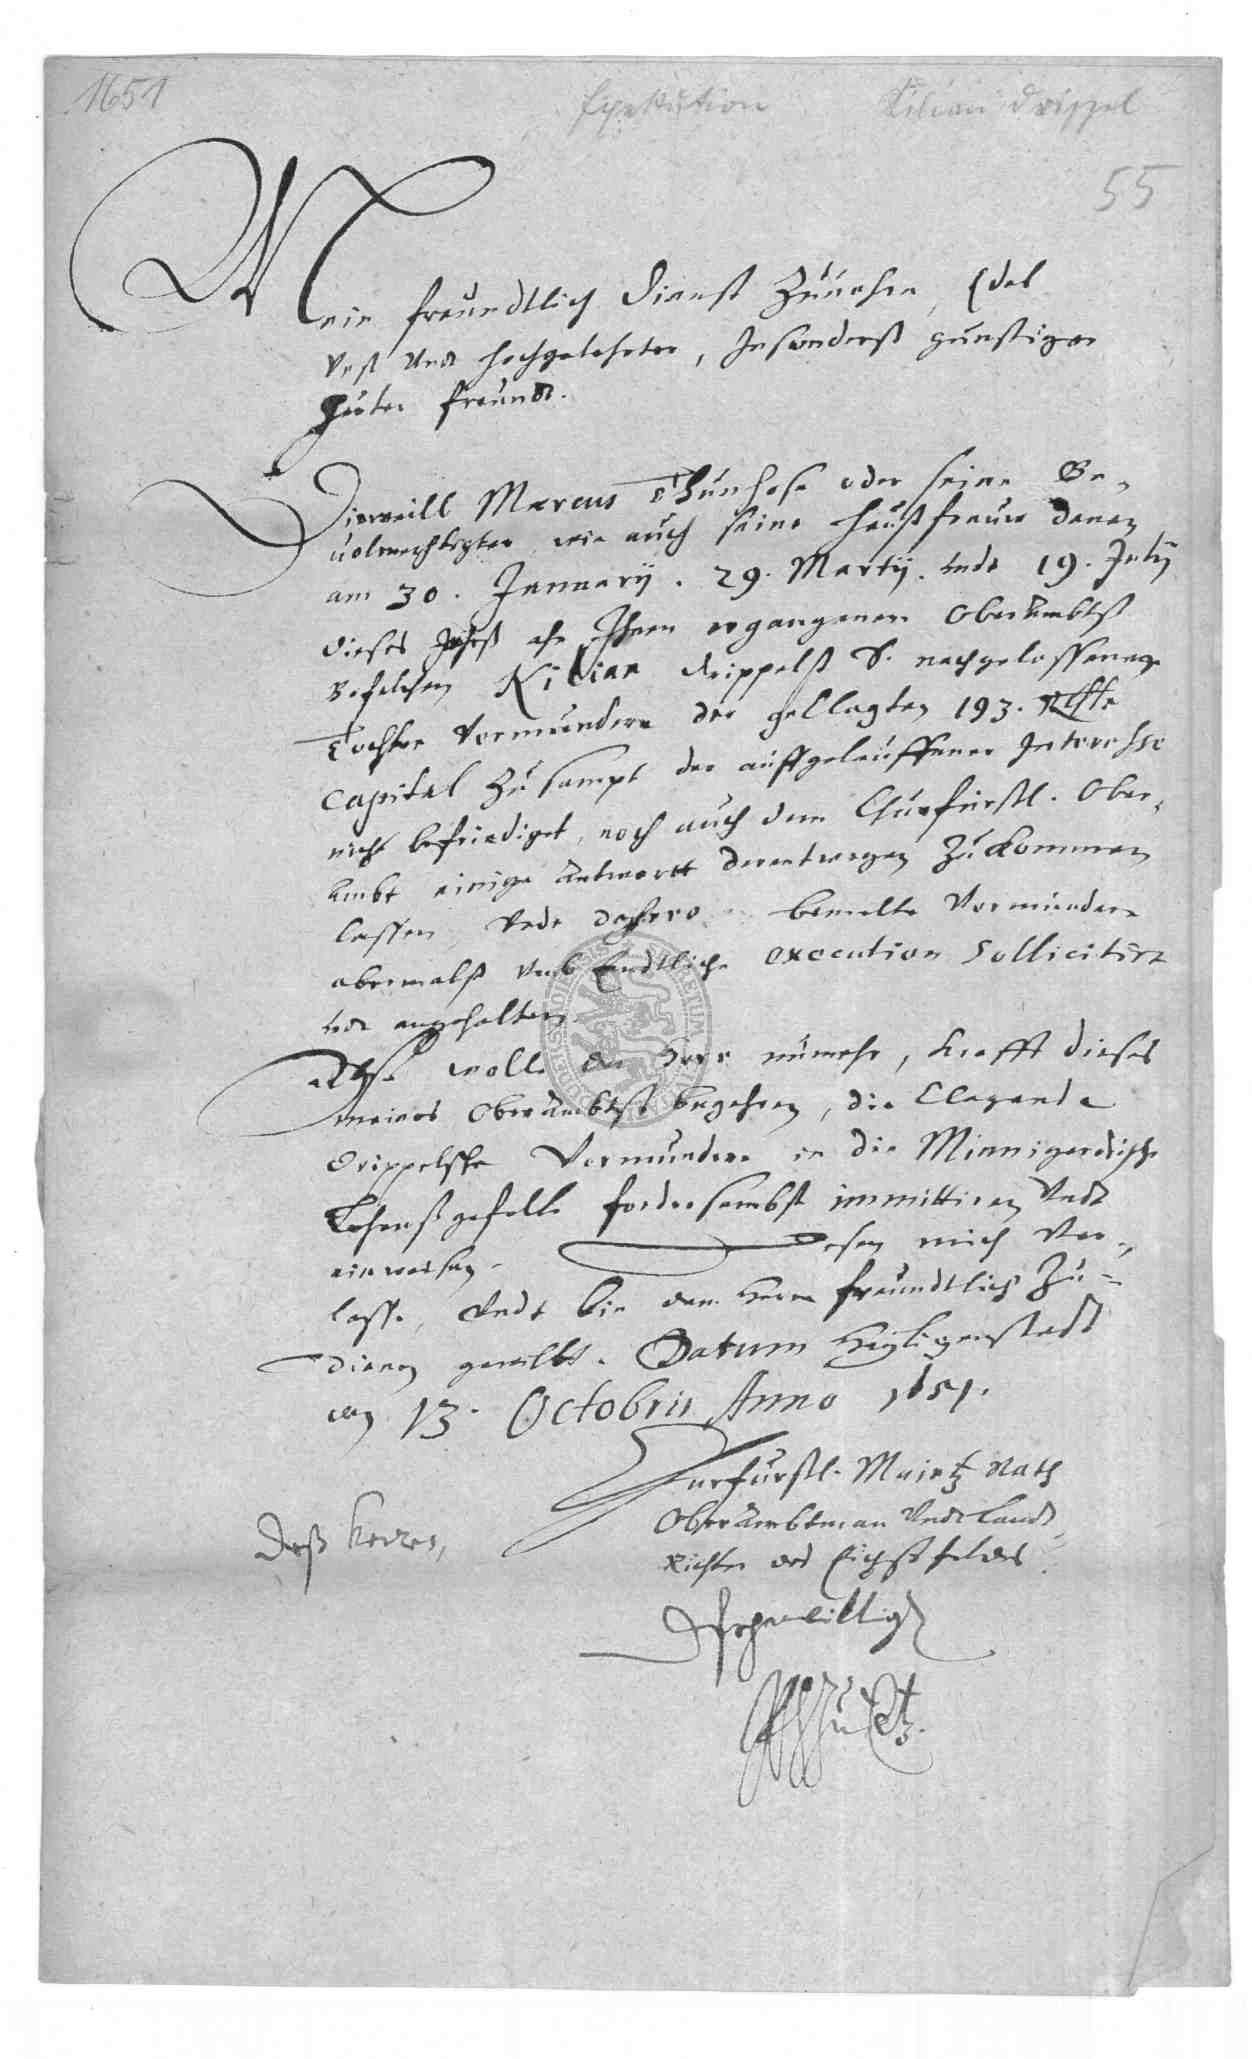 1651 Exekution Kilian Drippel
55
Mein freundtlich dienst zuuohrn, Edel
Vest Undt hochgelehrter, Insonderß gunstiger
guter freundt.
Dieweill Marcus Thunhose oder seine Be-
uolmechtigter wie auch seine haußfrauw denen
am 30. Januarij. 29. Martij. undt 19. Julij
dieses Jahrß ahn Ihnen ergangenen OberAmbtß
Befelchen Kilian Drippelß S. nachgelassener
Tochter Vormündern der geclagten 193. Rthlr
Capital zu sampt der auffgelauffener Interesse
nicht befriediget, noch auch dem Churfürstl. Ober-
Ambt einige Antwortt derentwegen zu kommen
lassen, Undt dahero bemelte Vormündere
abermalß umb Endtliche execution sollicitirt
undt angehalten
Alß wolle der Herr nunmehr, krafft dieses
meines OberAmbtß begehren, die Clagende
Drippelsche Vormundere in die Minnigerodische
Lehenßgefelle fordersambst immittiren Undt
einweisen. dessen mich Ver-
lasse, Undt bin dem Herrn freundtlich zu-
dienen gewilbt. Datum Heyligenstadt
den 13. Octobris Anno 1651.
Churfurstl. Maintz Rath
OberAmbtman Undt Landt
Richter des Eichßfeldes
Deß herren,
dienstwilliger